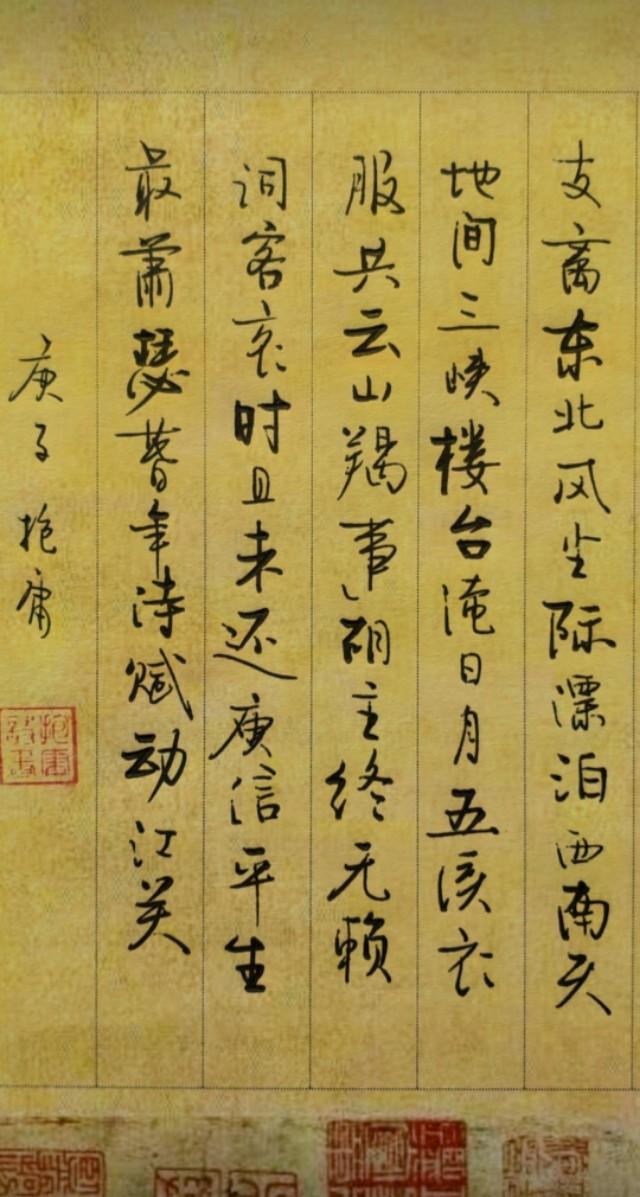 支离东北风尘际漂泊西南天
地间三峡楼台淹日月五溪衣
服共云山羯事胡主终无赖
词客哀时且未还庾信平生
最萧瑟暮年诗赋动江关
庚子抱庸